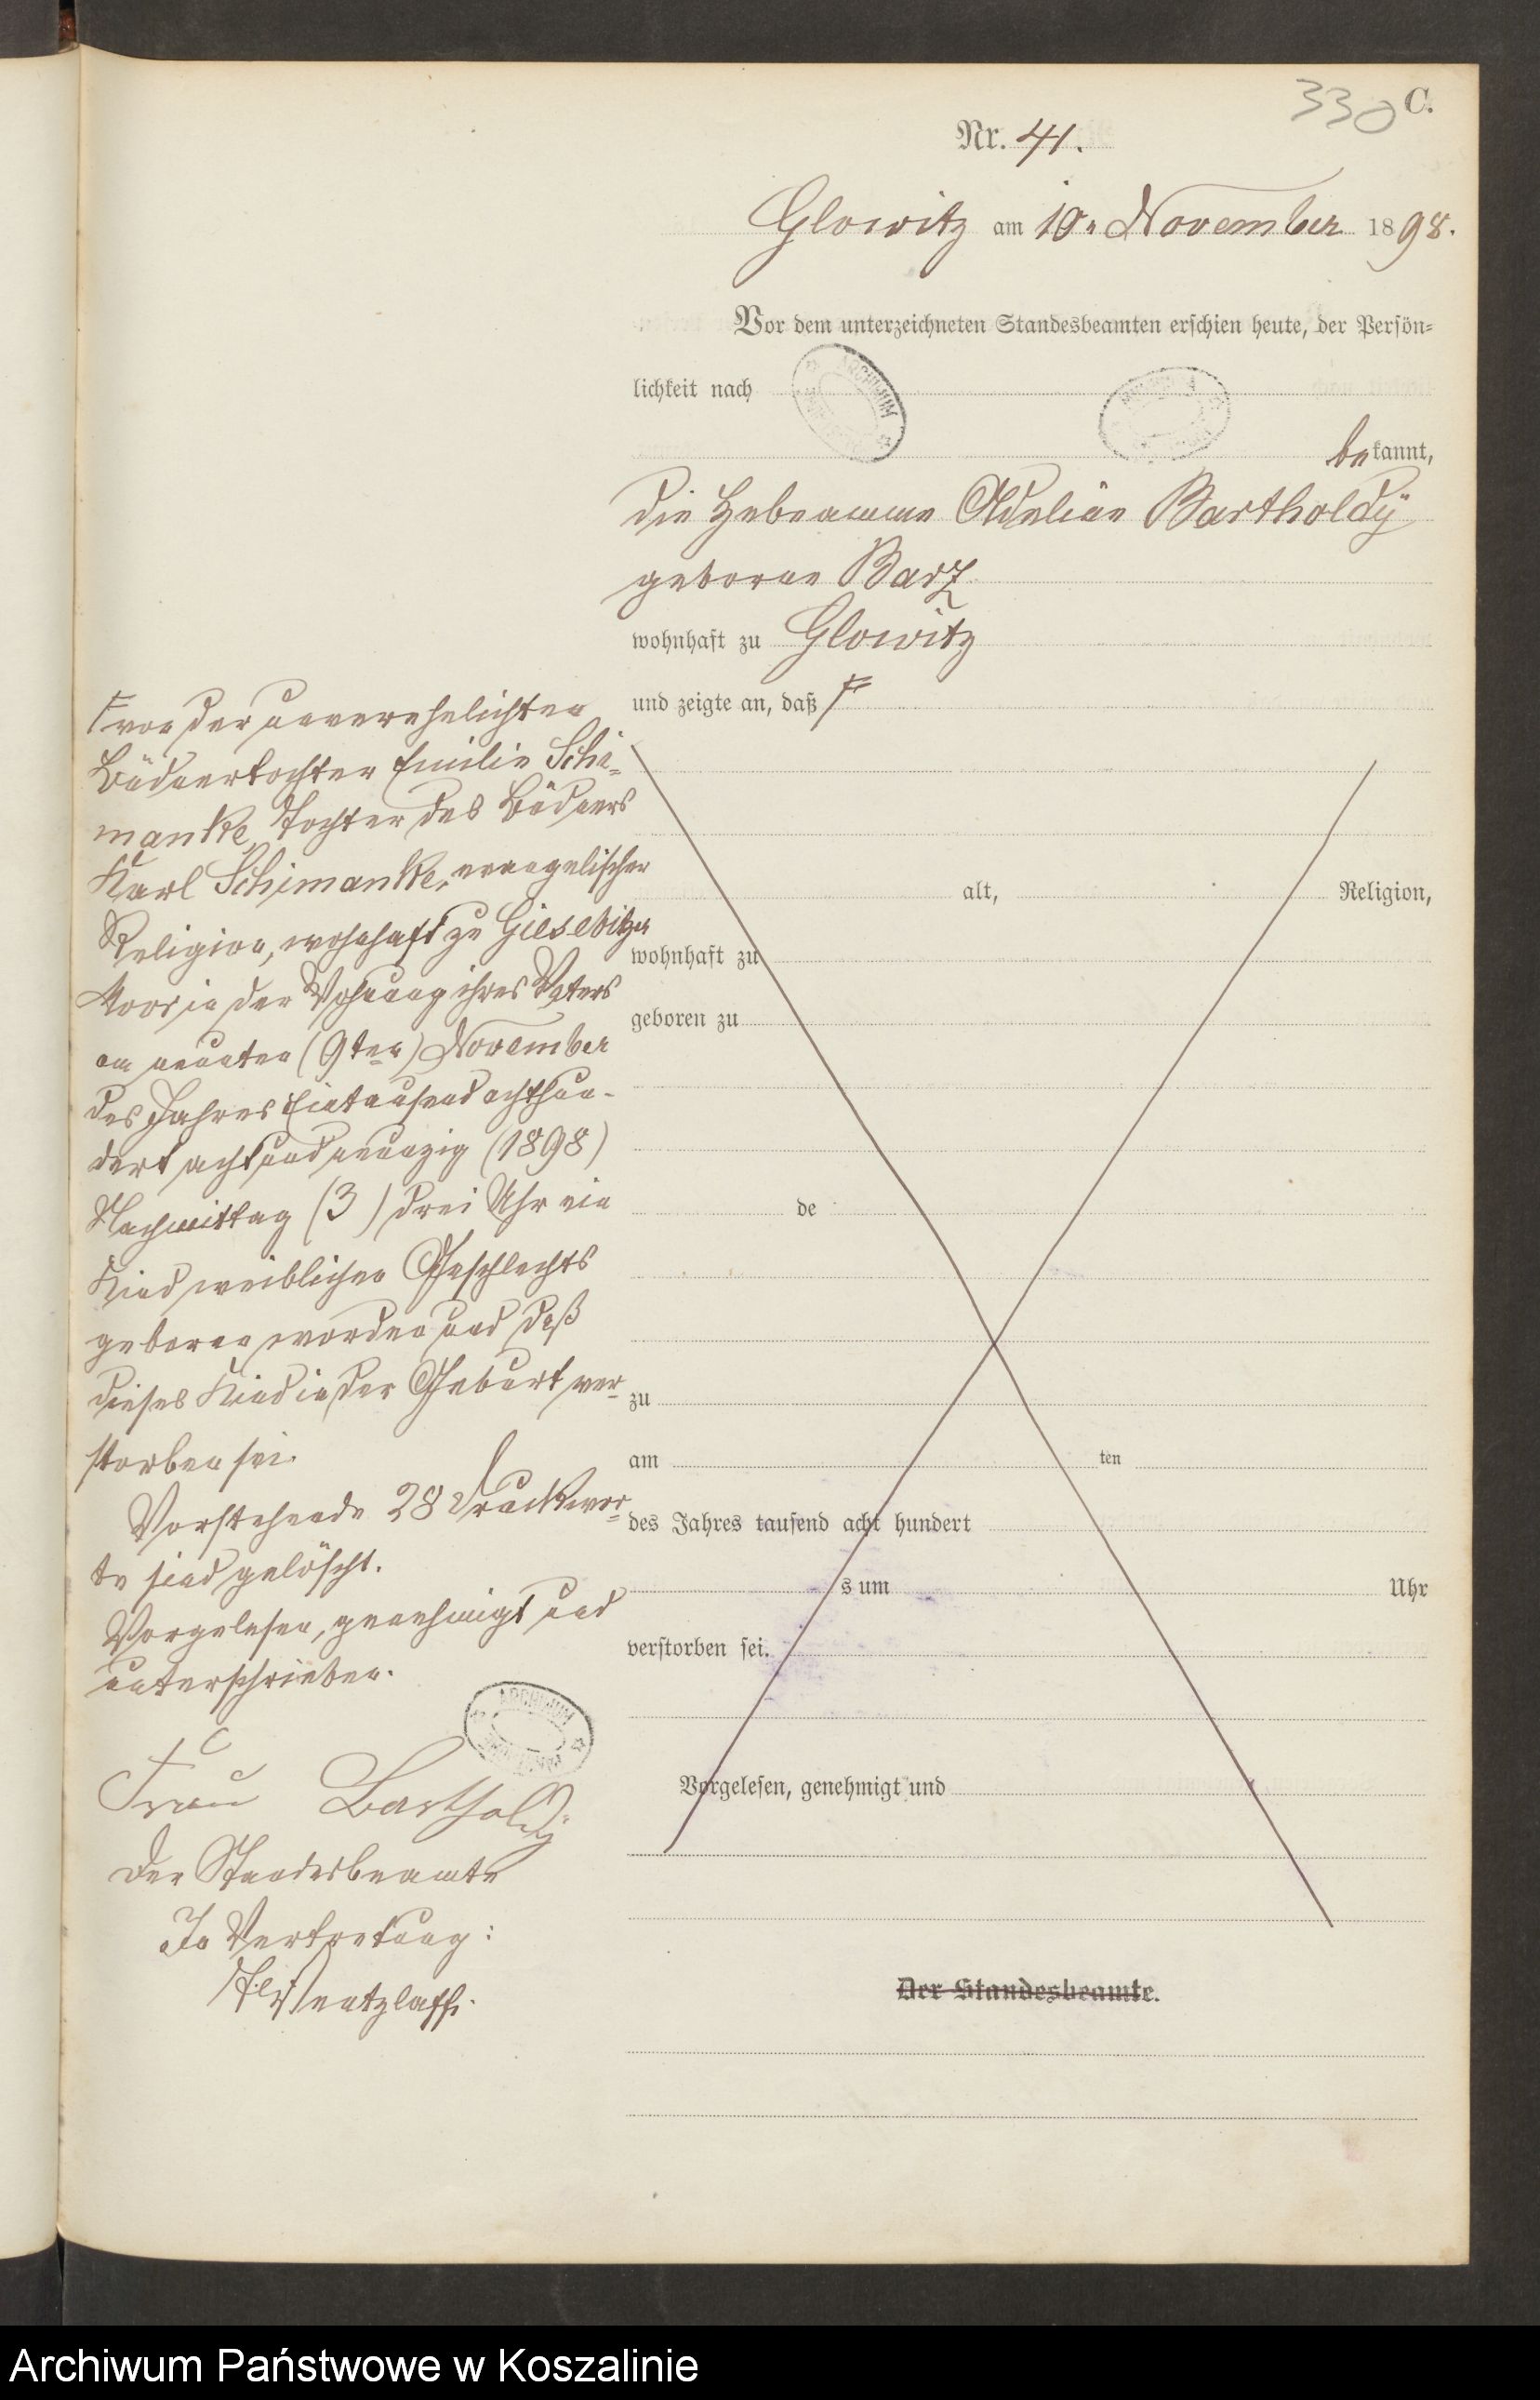 330 C.
Nr. 41.
Glowitz am 10. November 1898.
Vor dem unterzeichneten Standesbeamten erschien heute, der Persön=
lichkeit nach
bekannt,
die Hebeamme Adeline Bartholdÿ
geborne Barz
wohnhaft zu Glowitz
und zeigte an, daß F
F von der unverehelichten
Büdnertochter Emilie Schi-
manke, Tochter des Büdners
Karl Schimanke, evangelischer
Religion, wohnhaft zu Giesebitzer
Moor in der Wohnung ihres Vaters
am neunten (9ten) November
des Jahres Eintausend achthun-
dert achtundneunzig (1898)
Nachmittag (3) drei Uhr ein
Kind weiblichen Geschlechts
geboren worden und daß
dieses Kind in der Geburt ver-
storben sei.
Vorstehende 28 Druckwor-
te sind gelöscht.
Vorgelesen, genehmigt und
unterschrieben.
Frau Bartholdÿ
Der Standesbeamte
In Vertretung:
Wentzlaff.
alt, Religion,
wohnhaft zu
geboren zu
de
zu
am ten
des Jahres tausend acht hundert
s um Uhr
verstorben sei.
Vorgelesen, genehmigt und
Der Standesbeamte.
ARCHIWUM
Archiwum Państwowe w Koszalinie